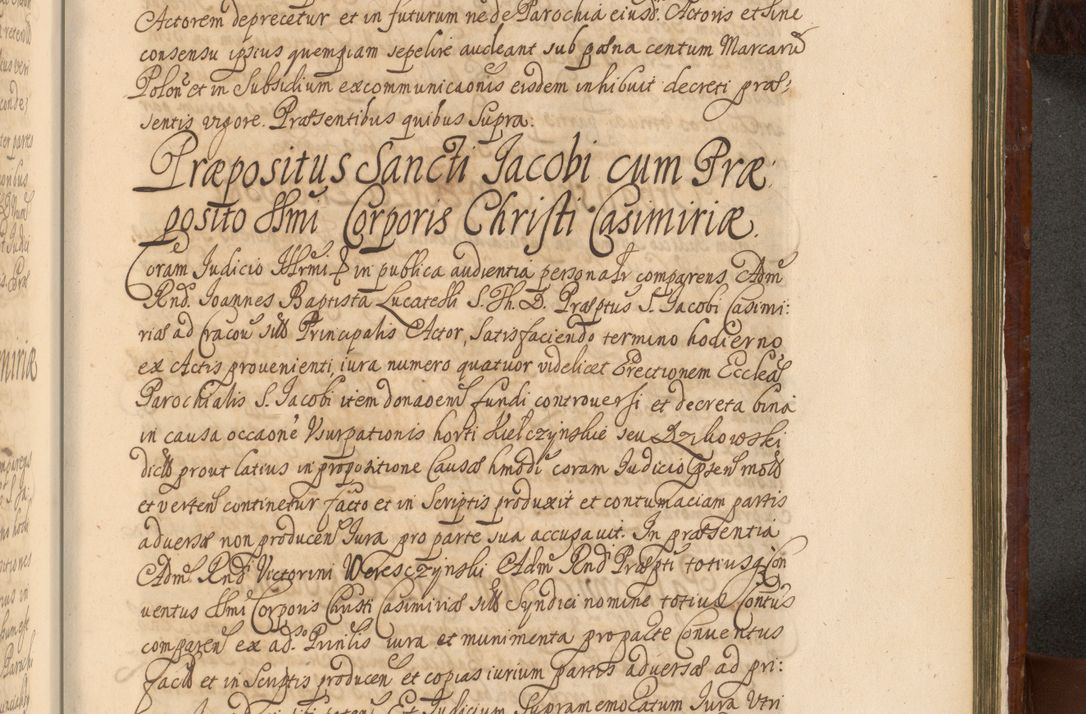 Actorem deprecetur et in futurum ne de Parochia eiusd. Actoris et sine
consensu ipsius quempiam sepelire audeant sub pæna centum Marcarū
Polon̄ et in Subsidium excommunicaonis eisdem inhibuit decreti præ:
sentis vigore. Præsentibus quibus Supra.
Præpositus Sancti Jacobi cum Præ:
posito SSmi Corporis Christi Casimiriæ.
Coram Judicio in publica audientia personalr comparens Adm̄
Rnd. Joannes Baptista Lucatelli S. Th. D. Præptus S. Jacobi Casimi:
riæ ad Cracou Principalis Actor, Satisfaciendo termino hodierno
ex Actis provenienti, iura numero quatuor videlicet Erectionem Eccleæ
Parochialis S. Jacobi item donaoem fundi controversi et decreta bina
in causa occaone Vsurpationis horti Kiełczynskie seu Rzikowski
dict prout latius in propositione Causæ hmodi coram Judicio psen mot
et verten continetur facto et in Scriptis produxit et contumaciam partis
adversæ non producen Jura pro parte sua accusavit. In præsentia
Adm Rnd Victorini Weresczynski Adm Rnd Præpti totiusq Con
ventus SSmi Corporis Christi Casimiriæ Syndici nomine totius Contus
comparen ex ad. Prinlis iura et munimenta pro parte Conventus
facto et in Scriptis producen et copias iurium partis adversæ ad pri:
peten Et Judicium Supramemoratum Jura Vtri